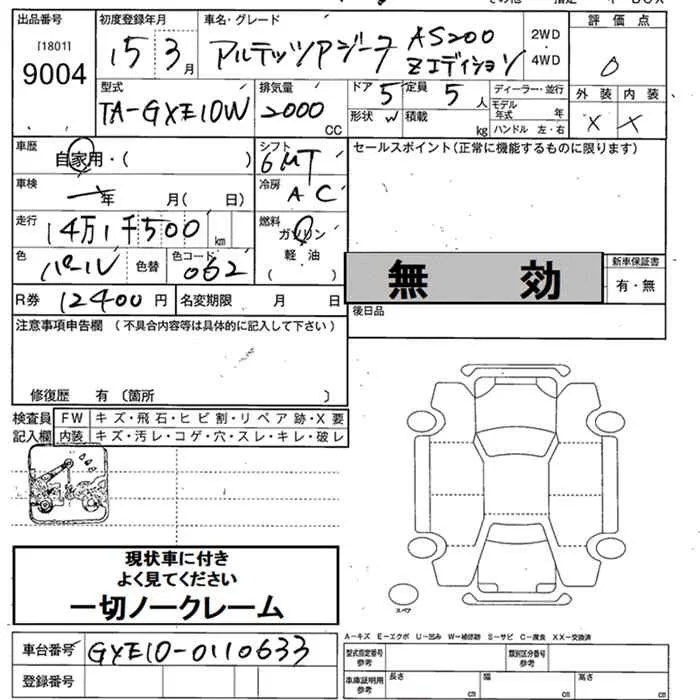 出品番号 初度登録年月 車名・グレード 評価点
[1801] 15 3月 アルテッツァジータ AS200 2WD・4WD 0
9004 Zエディション
型式 排気量 ドア 5 定員 5人 ディーラー・並行 外装 内装
TA-GXE10W 2000CC 形状 W 積載 kg モデル年式 年 X X
ハンドル 左・右
車歴 シフト セールスポイント(正常に機能するものに限ります)
自家用・( ) 6MT
車検 冷房
年 月( 日) AC
走行 燃料
14万1千500km ガソリン
色 色コード 軽油
パール 色替 062 ( )
無効 新車保証書
有・無
R券 12400円 名変期限 月 日 後日品
注意事項申告欄(不具合内容等は具体的に記入して下さい)
修復歴 有〔箇所 〕
検査員 FW キズ・飛石・ヒビ割・リペア跡・X要
記入欄 内装 キズ・汚レ・コゲ・穴・スレ・キレ・破レ
現状車に付き
よく見てください
一切ノークレーム
スペア
A-キズ E-エクボ U-凹み W-補修跡 S-サビ C-腐食 XX-交換済
車台番号 GXE10-0110633 型式指定番号 参考 類別区分番号 参考
登録番号 車庫証明用 参考 長さ cm 幅 cm 高さ cm